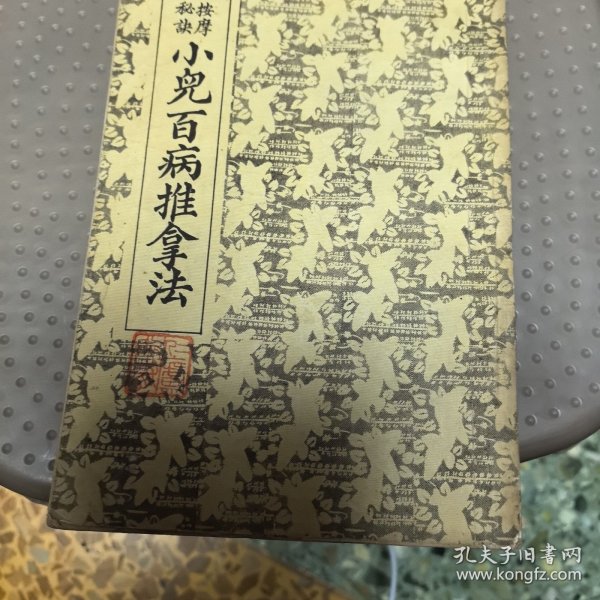 按摩
秘訣
小兒百病推拿法
孔夫子旧书网
www.kongfz.com